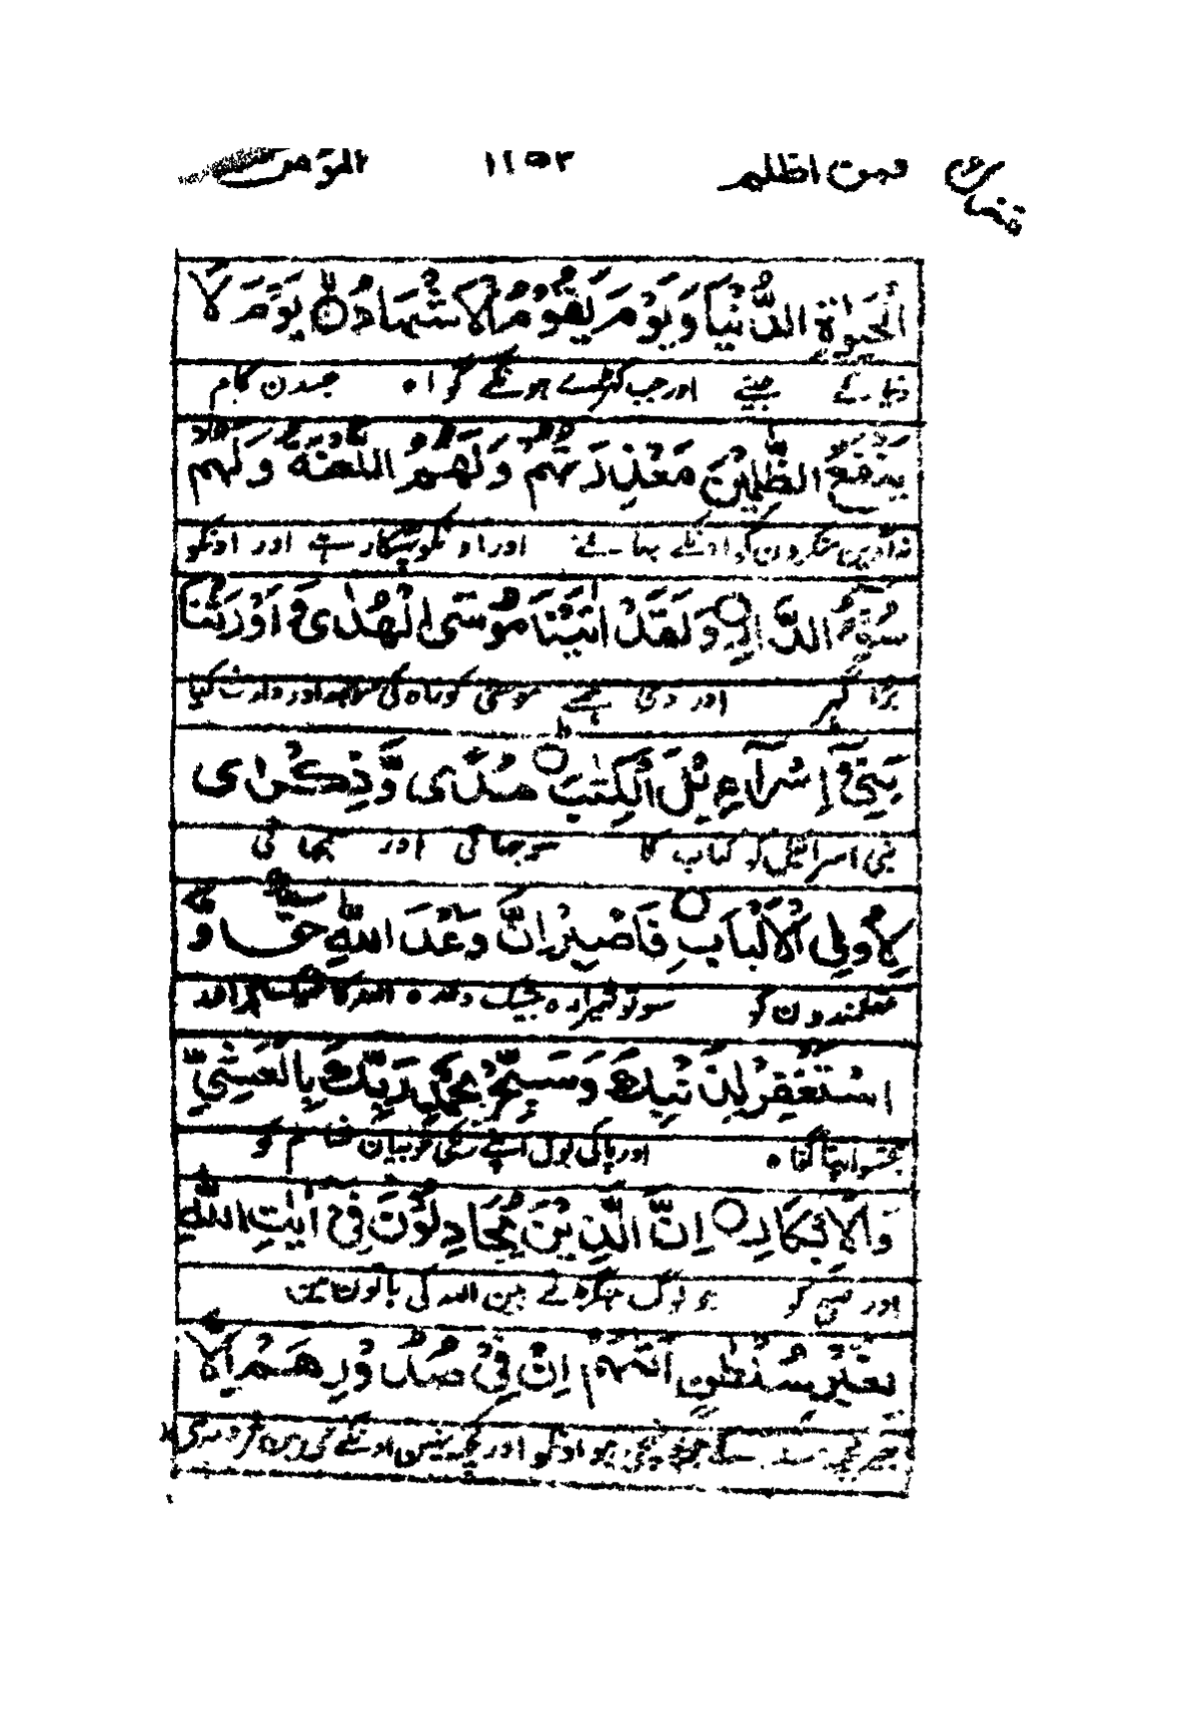 فمن اظلم ١٢٥٣ المؤمن
الْحَيٰوةِ الدُّنْيَا وَيَوْمَ يَقُوْمُ الْاَشْهَادُ يَوْمَ لَا
دنیا کے جیتے اور جب کھڑے ہونگے گواہ جسدن کام
يَنْفَعُ الظّٰلِمِيْنَ مَعْذِرَتُهُمْ وَلَهُمُ اللَّعْنَةُ وَلَهُمْ
نہ آوین منکرون کو اونکے بہانے اور اونکو پھٹکار ہے اور اونکو
سُوْٓءُ الدَّارِ وَلَقَدْ اٰتَيْنَا مُوْسَى الْهُدٰى وَاَوْرَثْنَا
برا گھر اور دی ہمنے موسیٰ کو راہ کی سوجھ اور وارث کیا
بَنِيْٓ اِسْرَآءِيْلَ الْكِتٰبَ هُدًى وَّذِكْرٰى
بنی اسرائیل کو کتاب کا سوجھاتی اور سمجھاتی
لِاُولِى الْاَلْبَابِ فَاصْبِرْ اِنَّ وَعْدَ اللّٰهِ حَقٌّ وَّ
عقلمندون کو سو تو ٹھیرا رہ بیشک وعدہ اللہ کا ٹھیک ہے اور
اسْتَغْفِرْ لِذَنْبِكَ وَسَبِّحْ بِحَمْدِ رَبِّكَ بِالْعَشِىِّ
بخشوا اپنا گناہ اور پاکی بول اپنے رب کی خوبیان شام کو
وَالْاِبْكَارِ اِنَّ الَّذِيْنَ يُجَادِلُوْنَ فِىْٓ اٰيٰتِ اللّٰهِ
اور صبح کو جو لوگ جھگڑتے ہین اللہ کی باتون مین
بِغَيْرِ سُلْطٰنٍ اَتٰىهُمْ اِنْ فِىْ صُدُوْرِهِمْ اِلَّا
بغیر کچھ سند کے جو پہنچی ہو اونکو اور کچھ نہیں اونکے جی مین